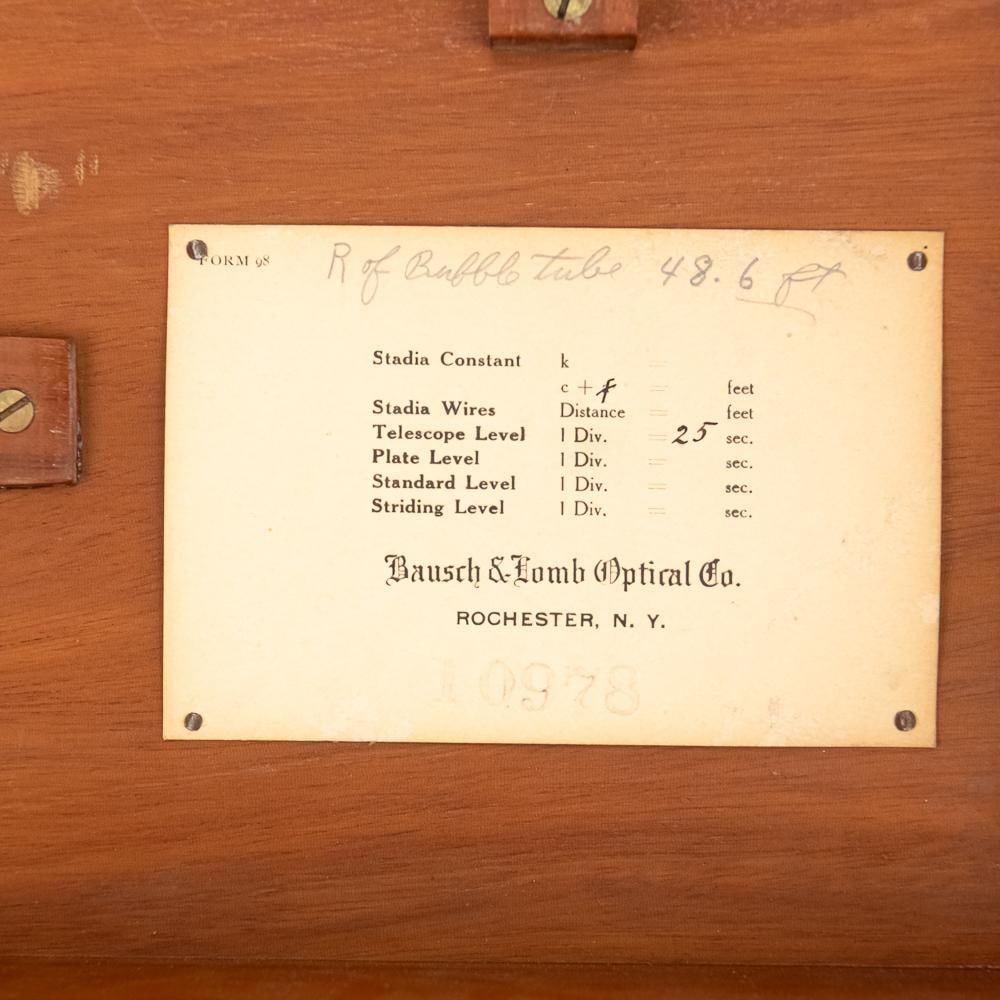 FORM 98
R of Bubble tube 48.6 ft
Stadia Constant k =
c + f = feet
Stadia Wires Distance = feet
Telescope Level 1 Div. = 25 sec.
Plate Level 1 Div. = sec.
Standard Level 1 Div. = sec.
Striding Level 1 Div. = sec.
Bausch & Lomb Optical Co.
ROCHESTER, N. Y.
10978